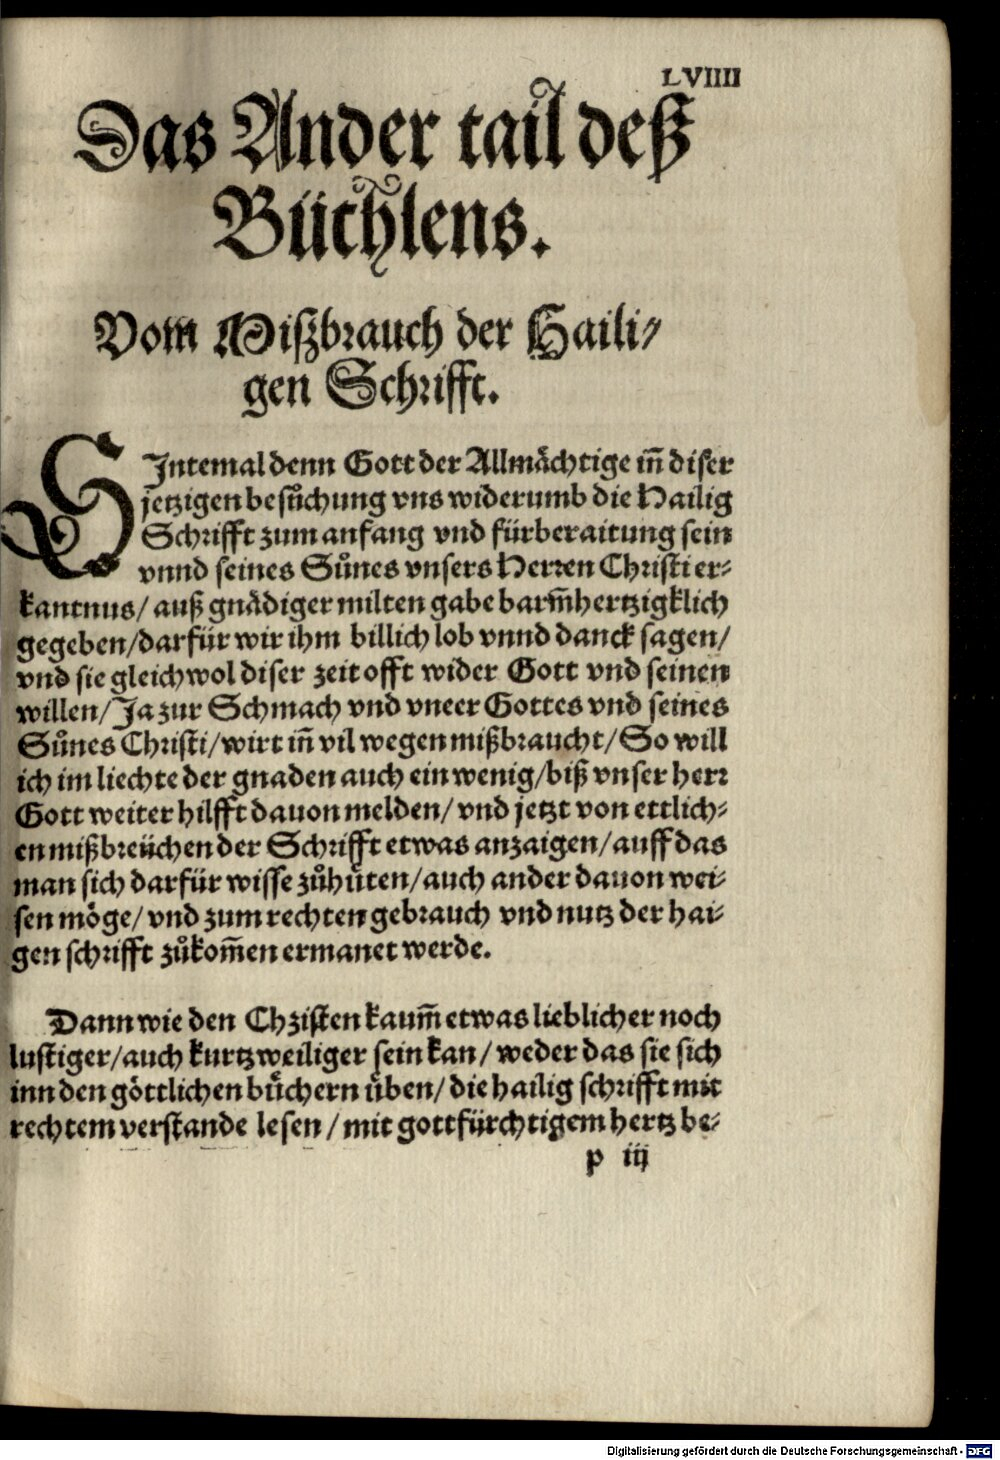 LVIIII
Das Ander tail deß
Büchlens.
Vom Mißbrauch der Haili⸗
gen Schrifft.
SIntemal denn Gott der Allmächtige iñ diser
jetzigen besůchung vns widerumb die Hailig
Schrifft zum anfang vnd fürberaitung sein
vnnd seines Sůnes vnsers Herren Christi er⸗
kantnus/ auß gnädiger milten gabe barm̃hertzigklich
gegeben/darfür wir ihm billich lob vnnd danck sagen/
vnd sie gleichwol diser zeit offt wider Gott vnd seinen
willen/Ja zur Schmach vnd vneer Gottes vnd seines
Sůnes Christi/wirt iñ vil wegen mißbraucht/So will
ich im liechte der gnaden auch ein wenig/biß vnser herr
Gott weiter hilfft dauon melden/ vnd jetzt von ettlich⸗
en mißbreüchen der Schrifft etwas anzaigen/auff das
man sich darfür wisse zůhüten/auch ander dauon wei⸗
sen möge/ vnd zum rechten gebrauch vnd nutz der hai⸗
gen schrifft zůkom̃en ermanet werde.
Dann wie den Christen kaum̃ etwas lieblicher noch
lustiger/auch kurtzweiliger sein kan/ weder das sie sich
inn den göttlichen bůchern üben/die hailig schrifft mit
rechtem verstande lesen/mit gottfürchtigem hertz be⸗
p iij
Digitalisierung gefördert durch die Deutsche Forschungsgemeinschaft - DFG